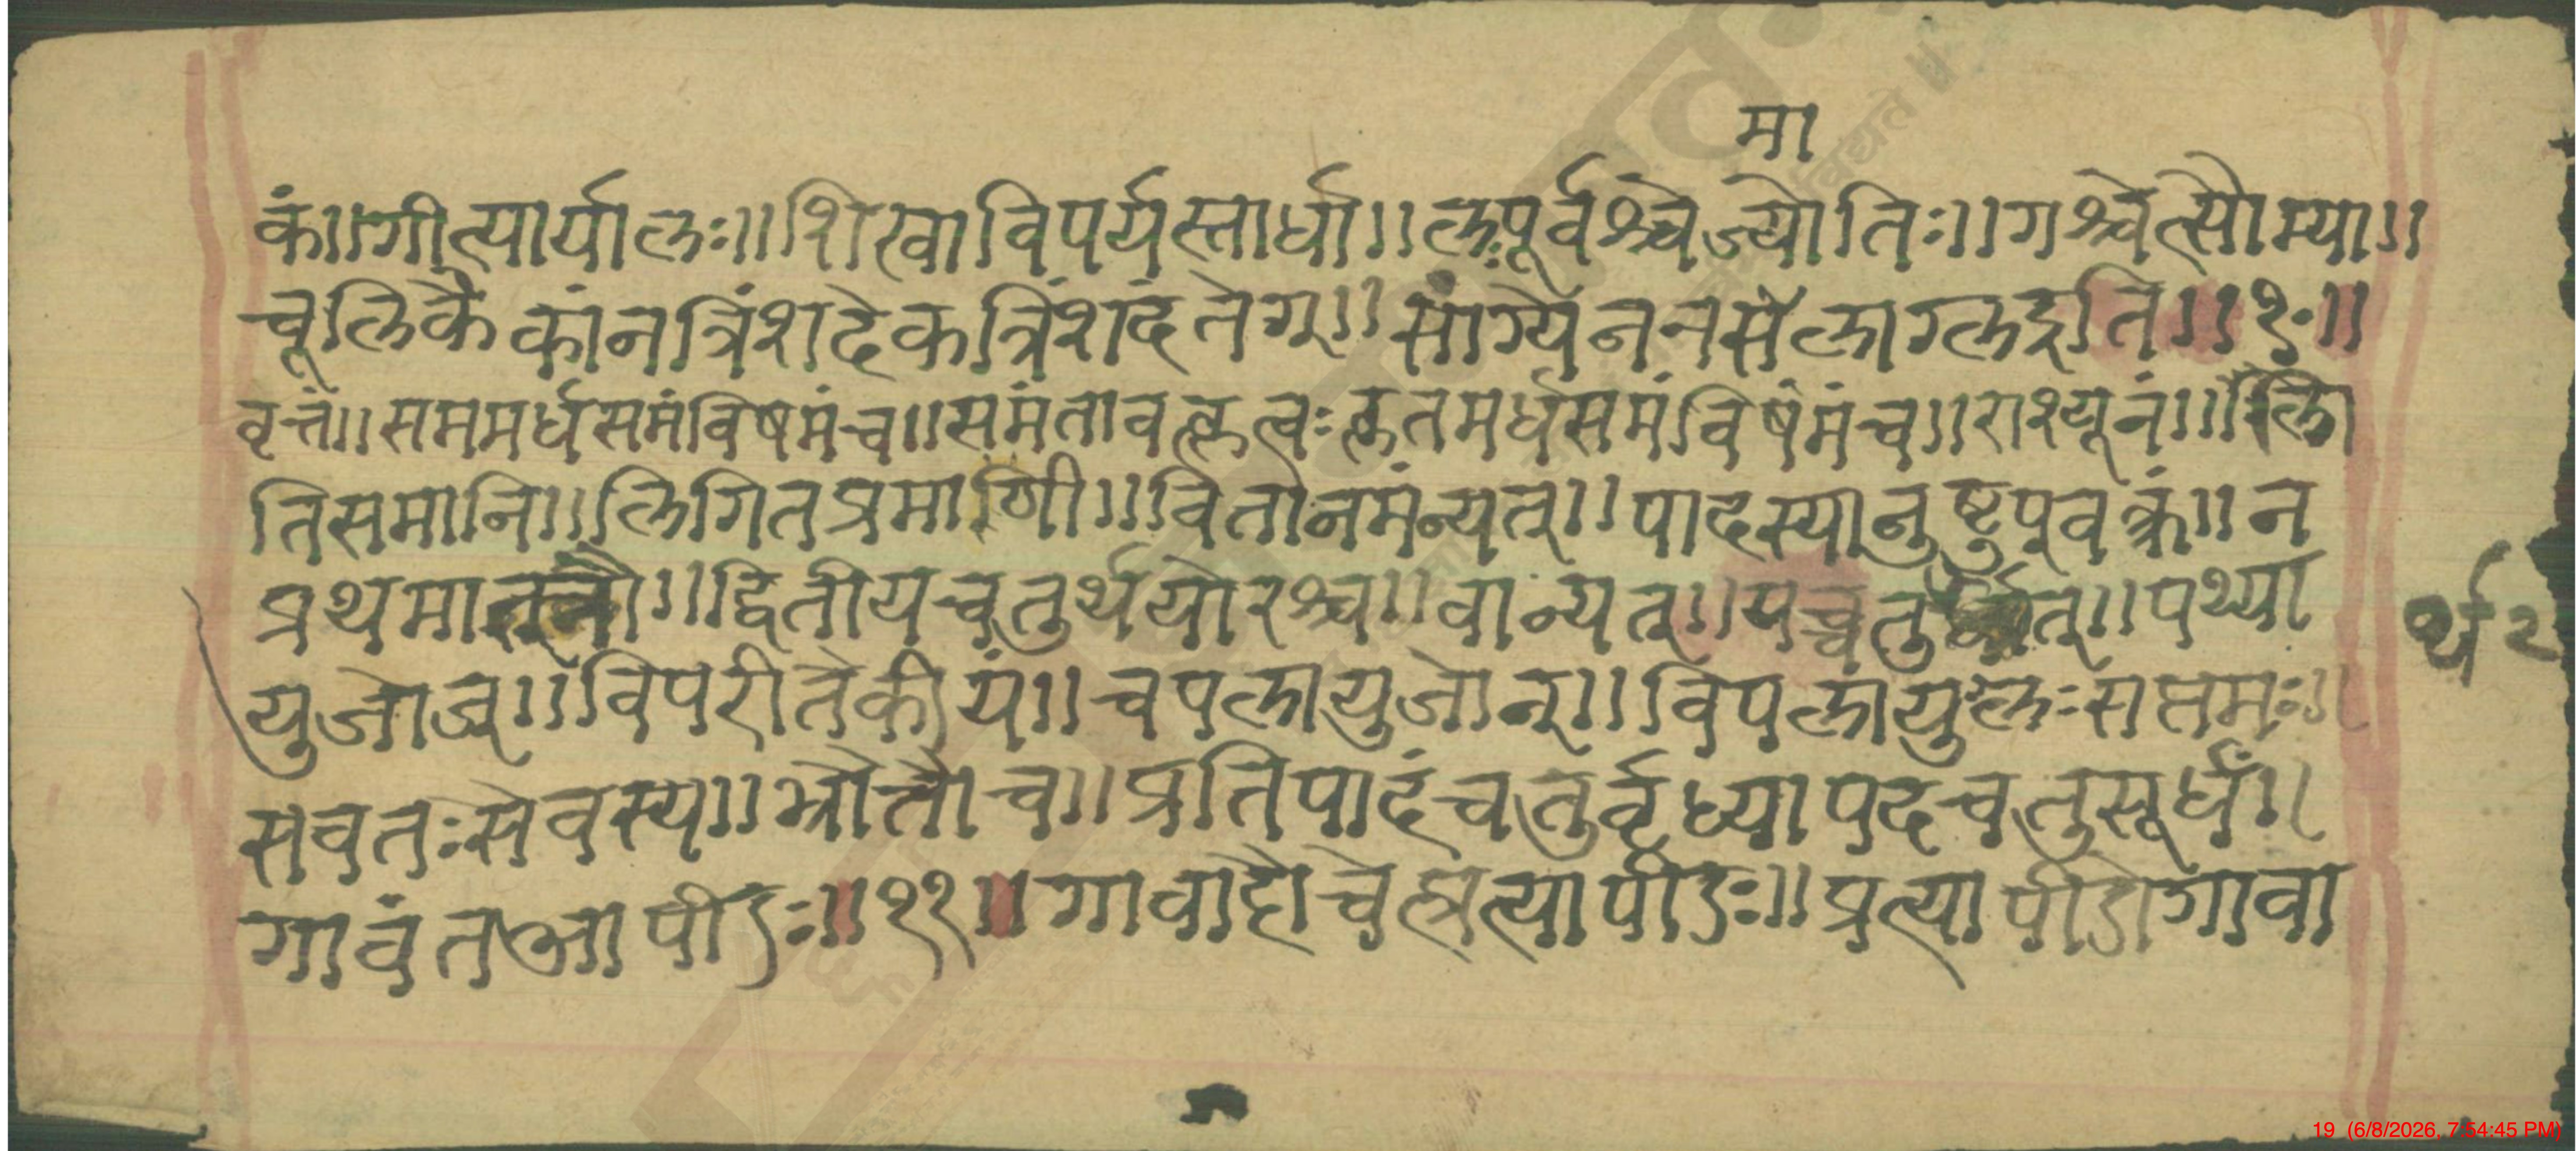 मा
कं॥गीत्यार्यालः॥शिखाविपर्यस्तार्धा॥लःपूर्वश्चेज्योतिः॥गश्चेत्सौम्या॥
चूलिकैकांनत्रिंशदेकत्रिंशदंतेग्॥सांग्येननसेलाग्लइति॥१०॥
वृत्तं॥सममर्धसमंविषमंच॥समंतावत्कृत्वःकृतमर्धसमंविषमंच॥राश्यूनं॥ग्लि
तिसमानि॥लिगितप्रमाणी॥वितानमन्यत्॥पादस्यानुष्टुप्वक्त्रं॥न
प्रथमात्स्नौ॥द्वितीयचतुर्थयोरश्च॥वान्यत्॥यच्चतुर्थात्॥पथ्या
र्थ २
युजोज्॥विपरीतैकीयं॥चपलायुजोन्॥विपुलायुग्लःसप्तमः॥
सवतःसैवस्य॥भ्रौत्नौच॥प्रतिपादंचतुर्वृध्यापदचतुरूर्ध्वं॥
गावंतआपीडः॥११॥गावादौचेत्प्रत्यापीडः॥प्रत्यापीडोगावा